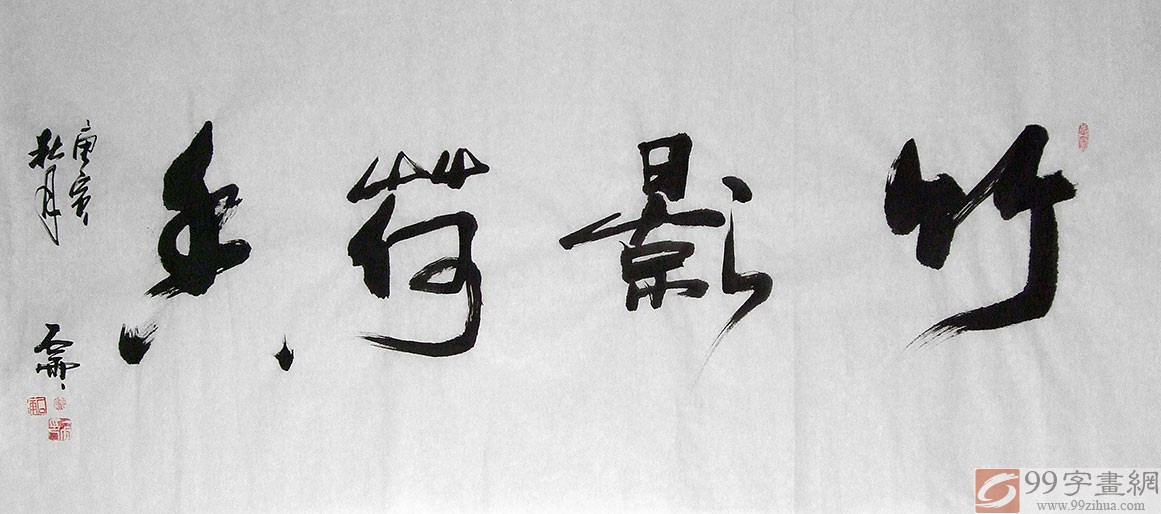 竹影荷香
庚寅
秋月
99字畫網
www.99zihua.com